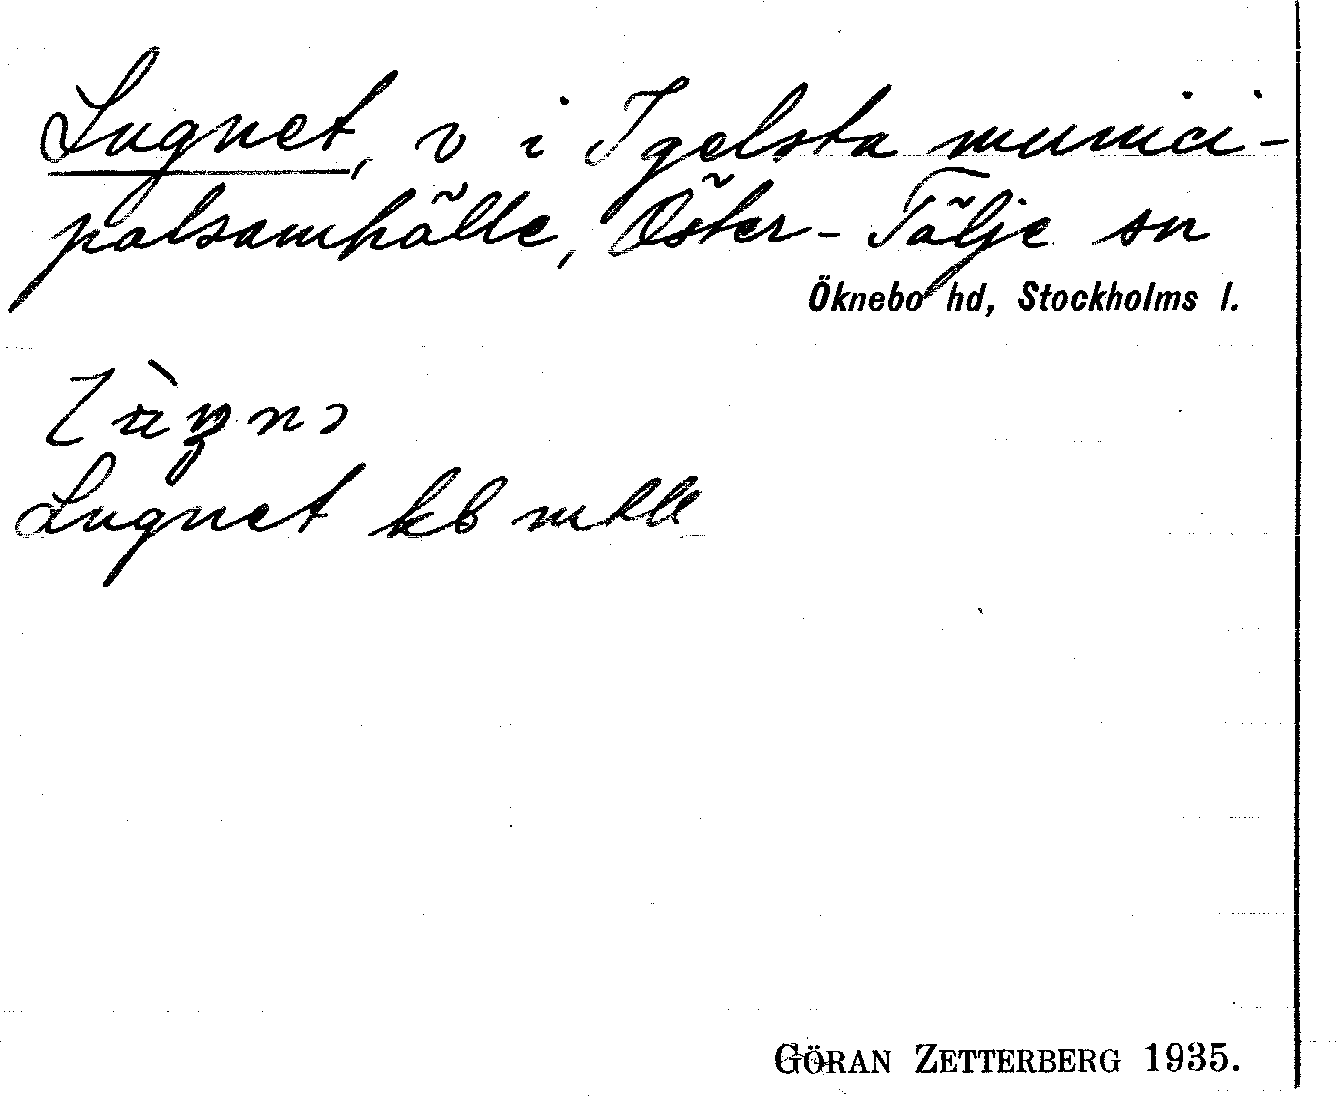 Lugnet, v i Igelsta munici-
palsamhälle, Öster-Tälje sn
Öknebo hd, Stockholms l.
Lugnet kb mtll
GÖRAN ZETTERBERG 1935.